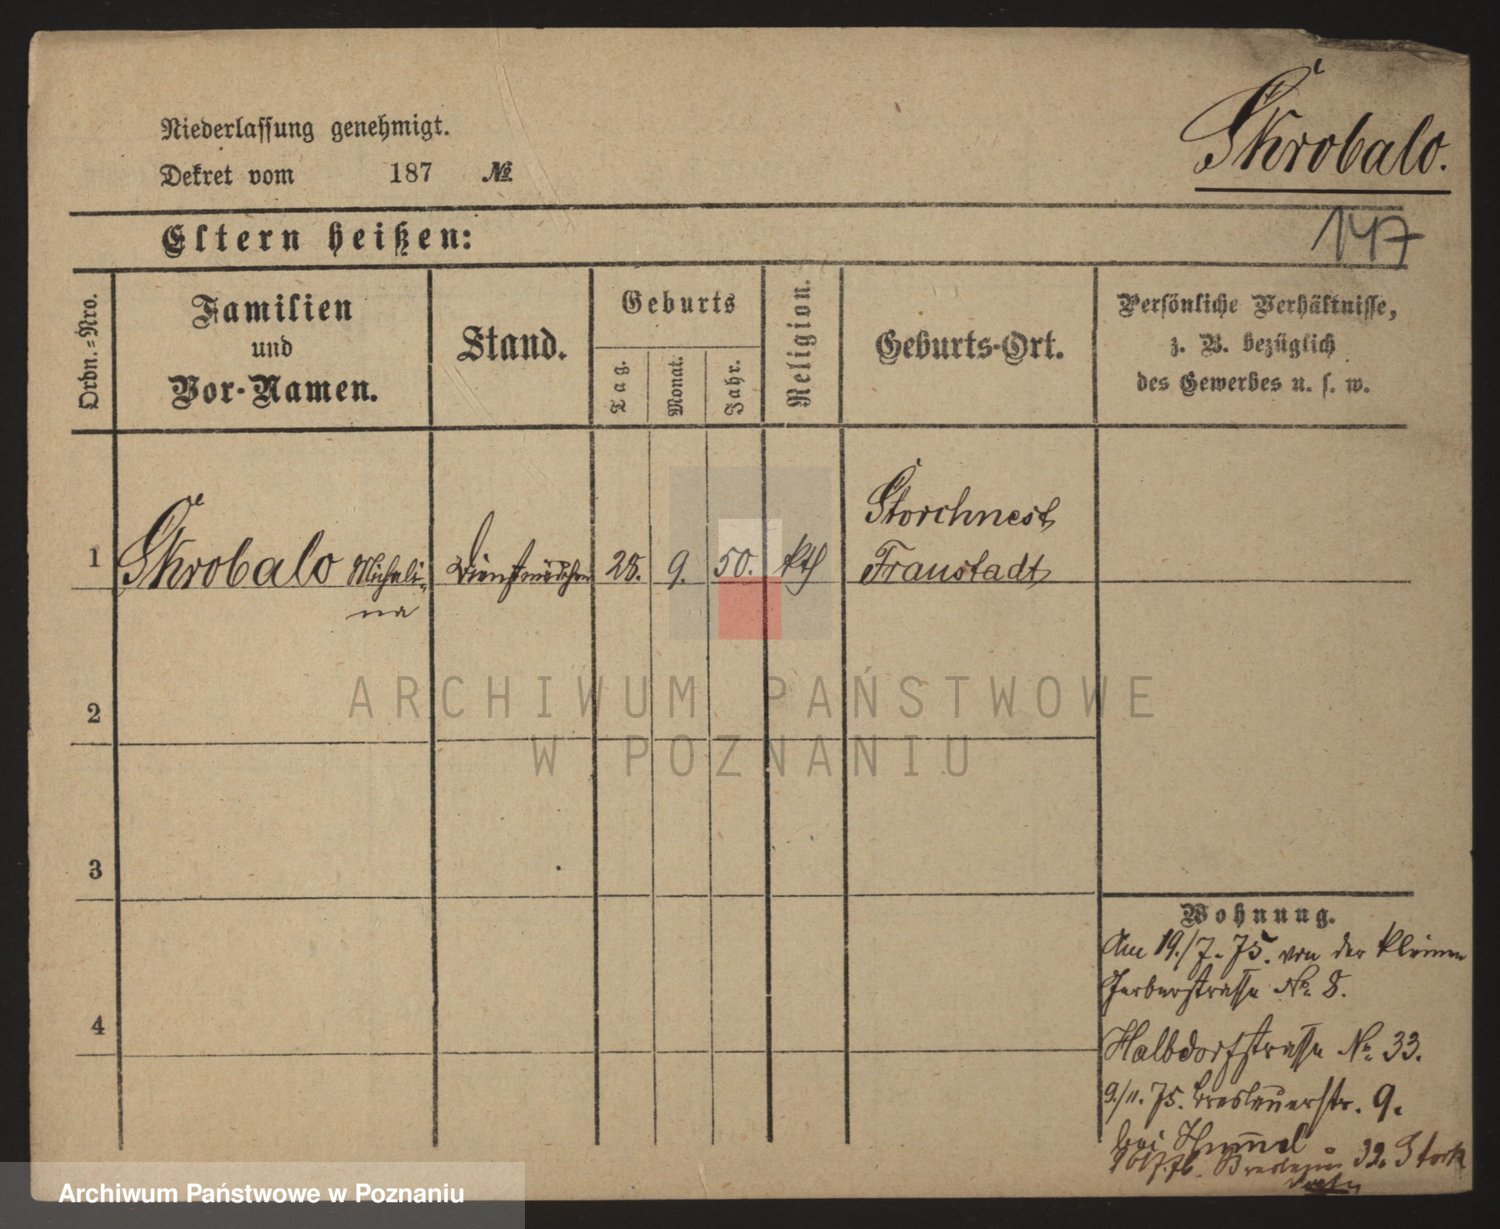 Niederlassung genehmigt.
Dekret vom 187 №
Skrobalo.
147
Eltern heißen:
Ordn.-Nro.
Familien
und
Vor-Namen.
Stand.
Geburts
Tag.
Monat.
Jahr.
Religion.
Geburts-Ort.
Persönliche Verhältnisse,
z. B. bezüglich
des Gewerbes u. s. w.
1 Skrobalo Michali-
na
Dienstmädchen 28. 9. 50. kth
Storchnest
Fraustadt
2
3
4
Wohnung.
Am 19./7. 75. von der kleinen
Gerberstrasse No 8.
Halbdorfstrasse No 33.
9./11. 75. Breslauerstr. 9.
bei Hummel
32.
ARCHIWUM PAŃSTWOWE
W POZNANIU
Archiwum Państwowe w Poznaniu